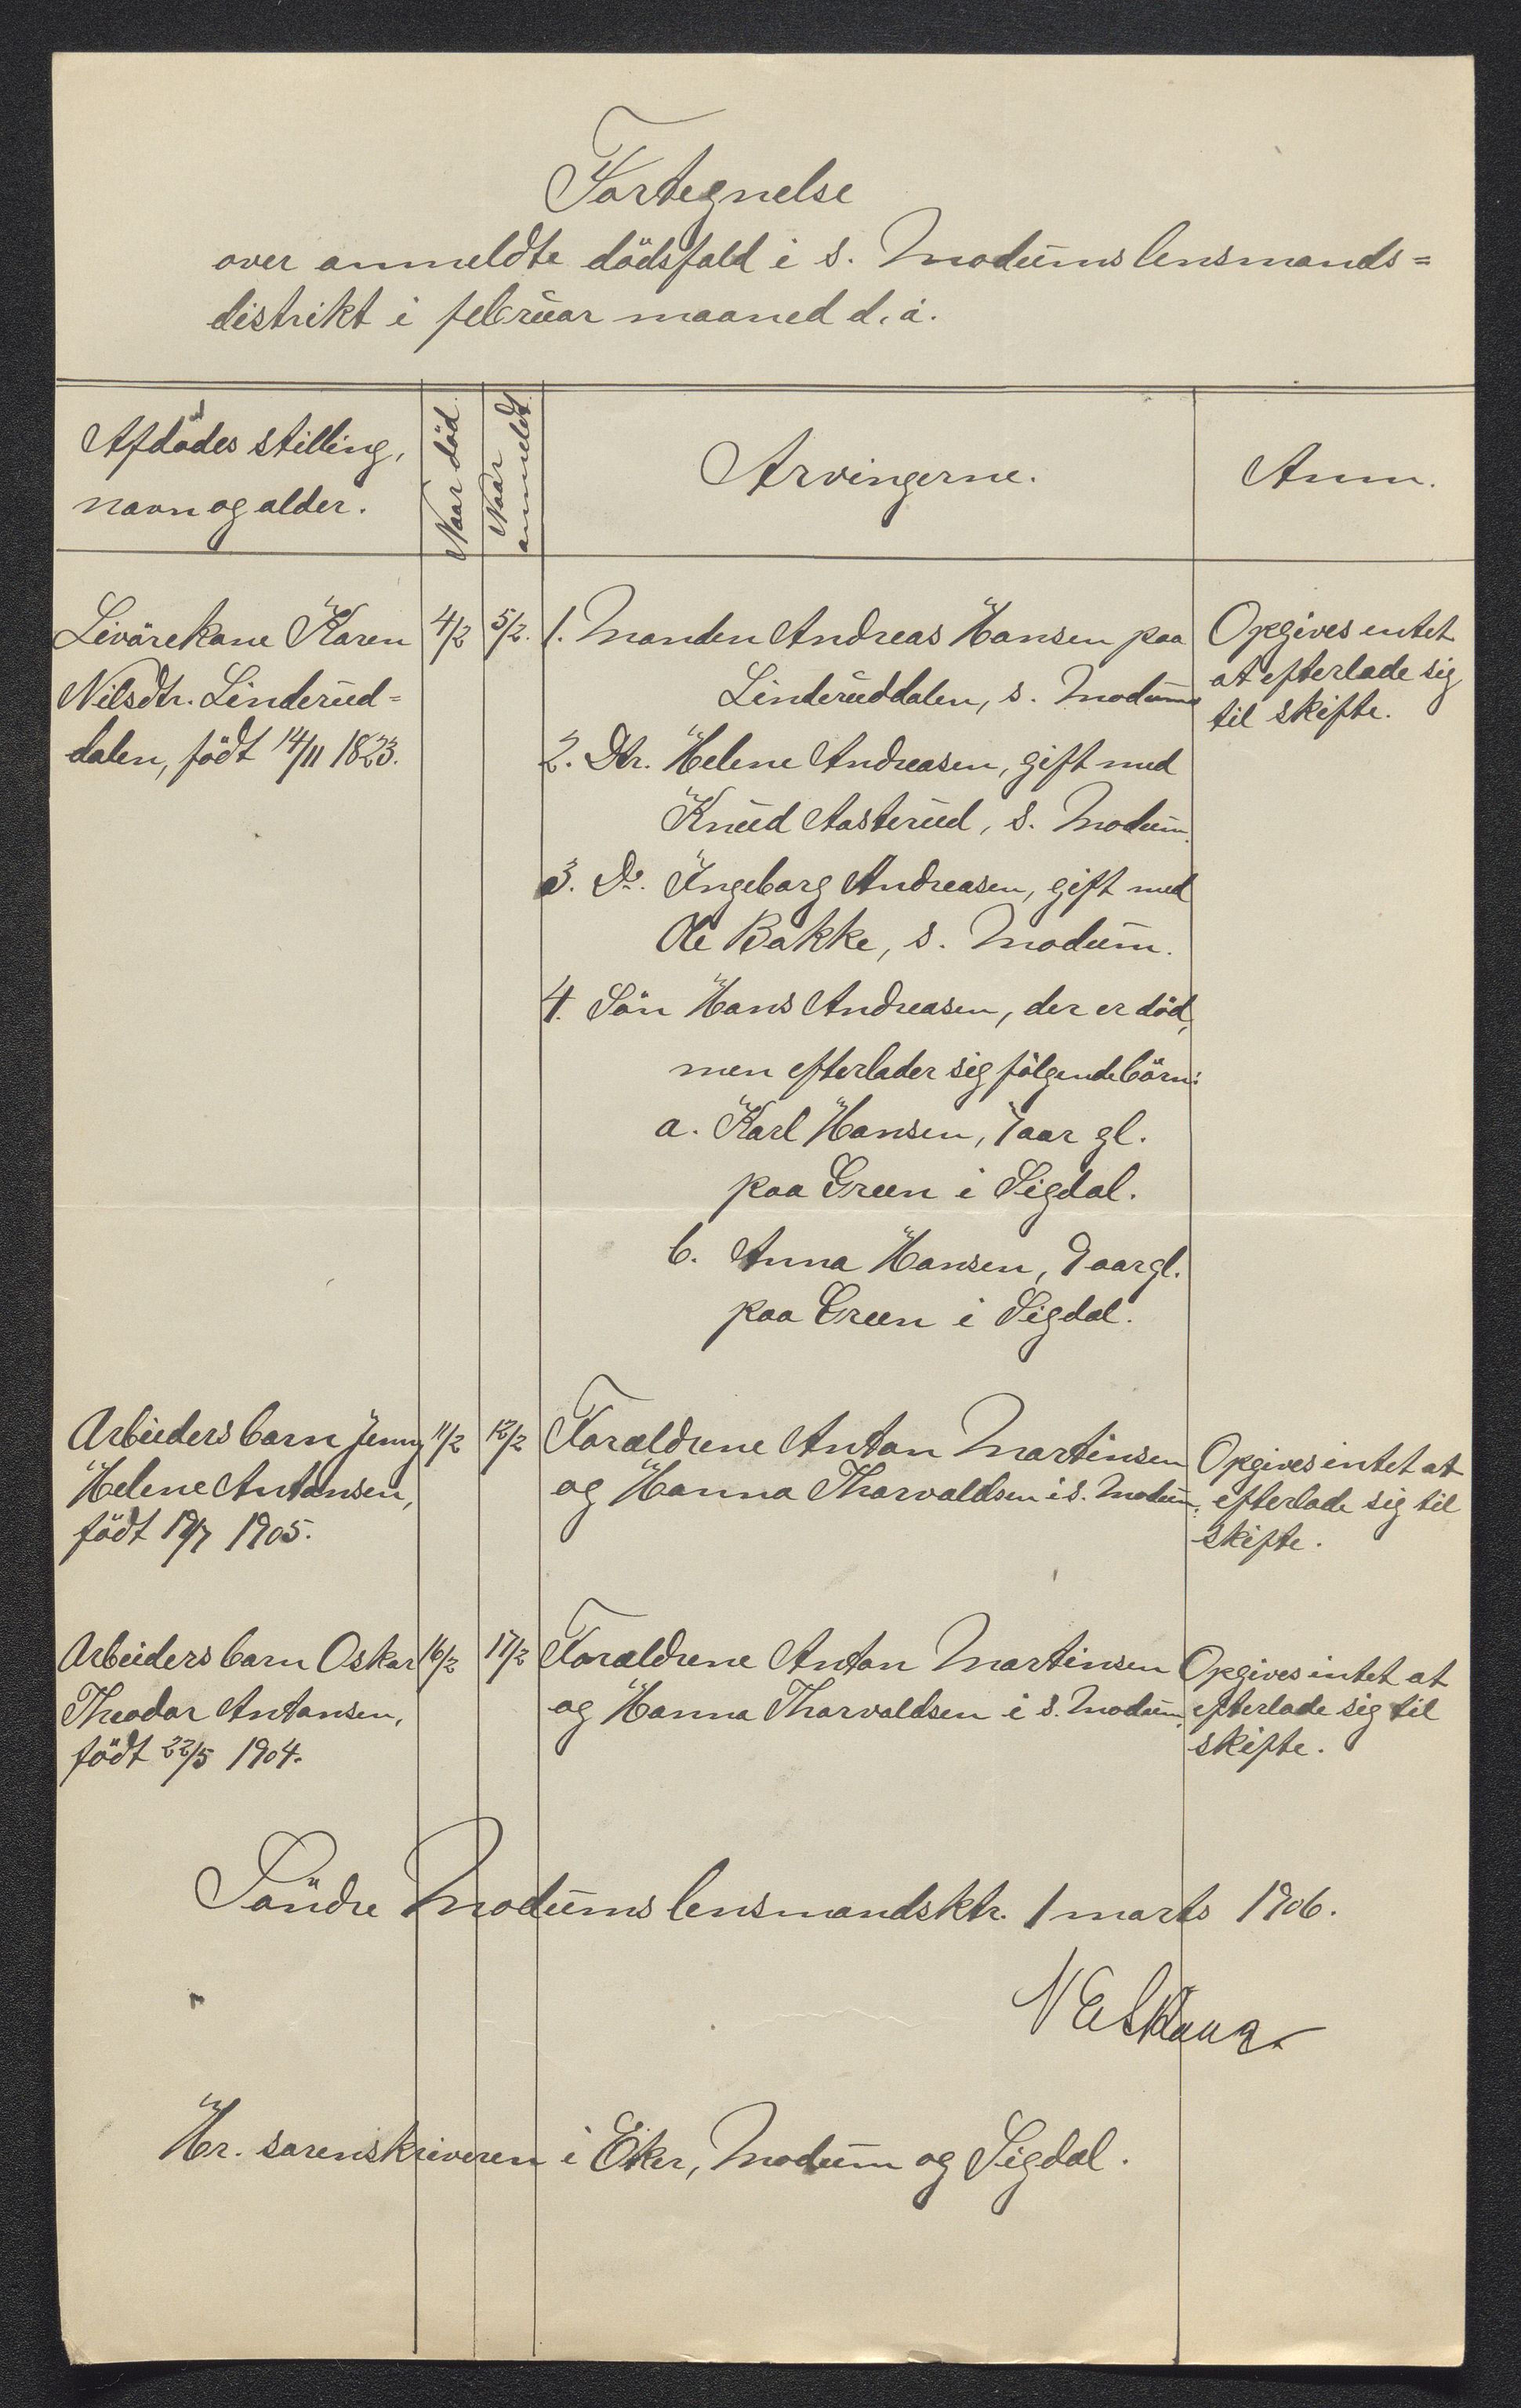 Fortegnelse
over anmeldte dödsfald i s. Modums lensmands=
distrikt i februar maaned d. å.
Afdödes stilling,
navn og alder.
Naar död.
Naar
anmeldt.
Arvingerne.
Anm.
Livörekone Karen
Nilsdtr. Linderud=
dalen, födt 14/11 1823.
4/2
5/2.
1. Manden Andreas Hansen paa
Linderuddalen, s. Modum
2. Dtr. Helene Andreasen, gift med
Knud Aasterud, s. Modum.
3. Do. Ingeborg Andreasen, gift med
Ole Bakke, s. Modum.
4. Sön Hans Andreasen, der er död,
men efterlader sig fölgende börn:
a. Karl Hansen, 7 aar gl.
paa Green i Sigdal.
b. Anna Hansen, 9 aar gl.
paa Green i Sigdal.
Opgives intet
at efterlade sig
til skifte.
Arbeiders barn Jenny
Helene Antonsen,
födt 19/7 1905.
11/2
12/2
Forældrene Anton Martinsen
og Hanna Thorvaldsen i s. Modum.
Opgives intet at
efterlade sig til
skifte.
Arbeiders barn Oskar
Theodor Antonsen,
födt 22/5 1904.
16/2
17/2
Forældrene Anton Martinsen
og Hanna Thorvaldsen i s. Modum.
Opgives intet at
efterlade sig til
skifte.
Söndre Modums lensmandsktr. 1 marts 1906.
Hr. sorenskriveren i Eker, Modum og Sigdal.